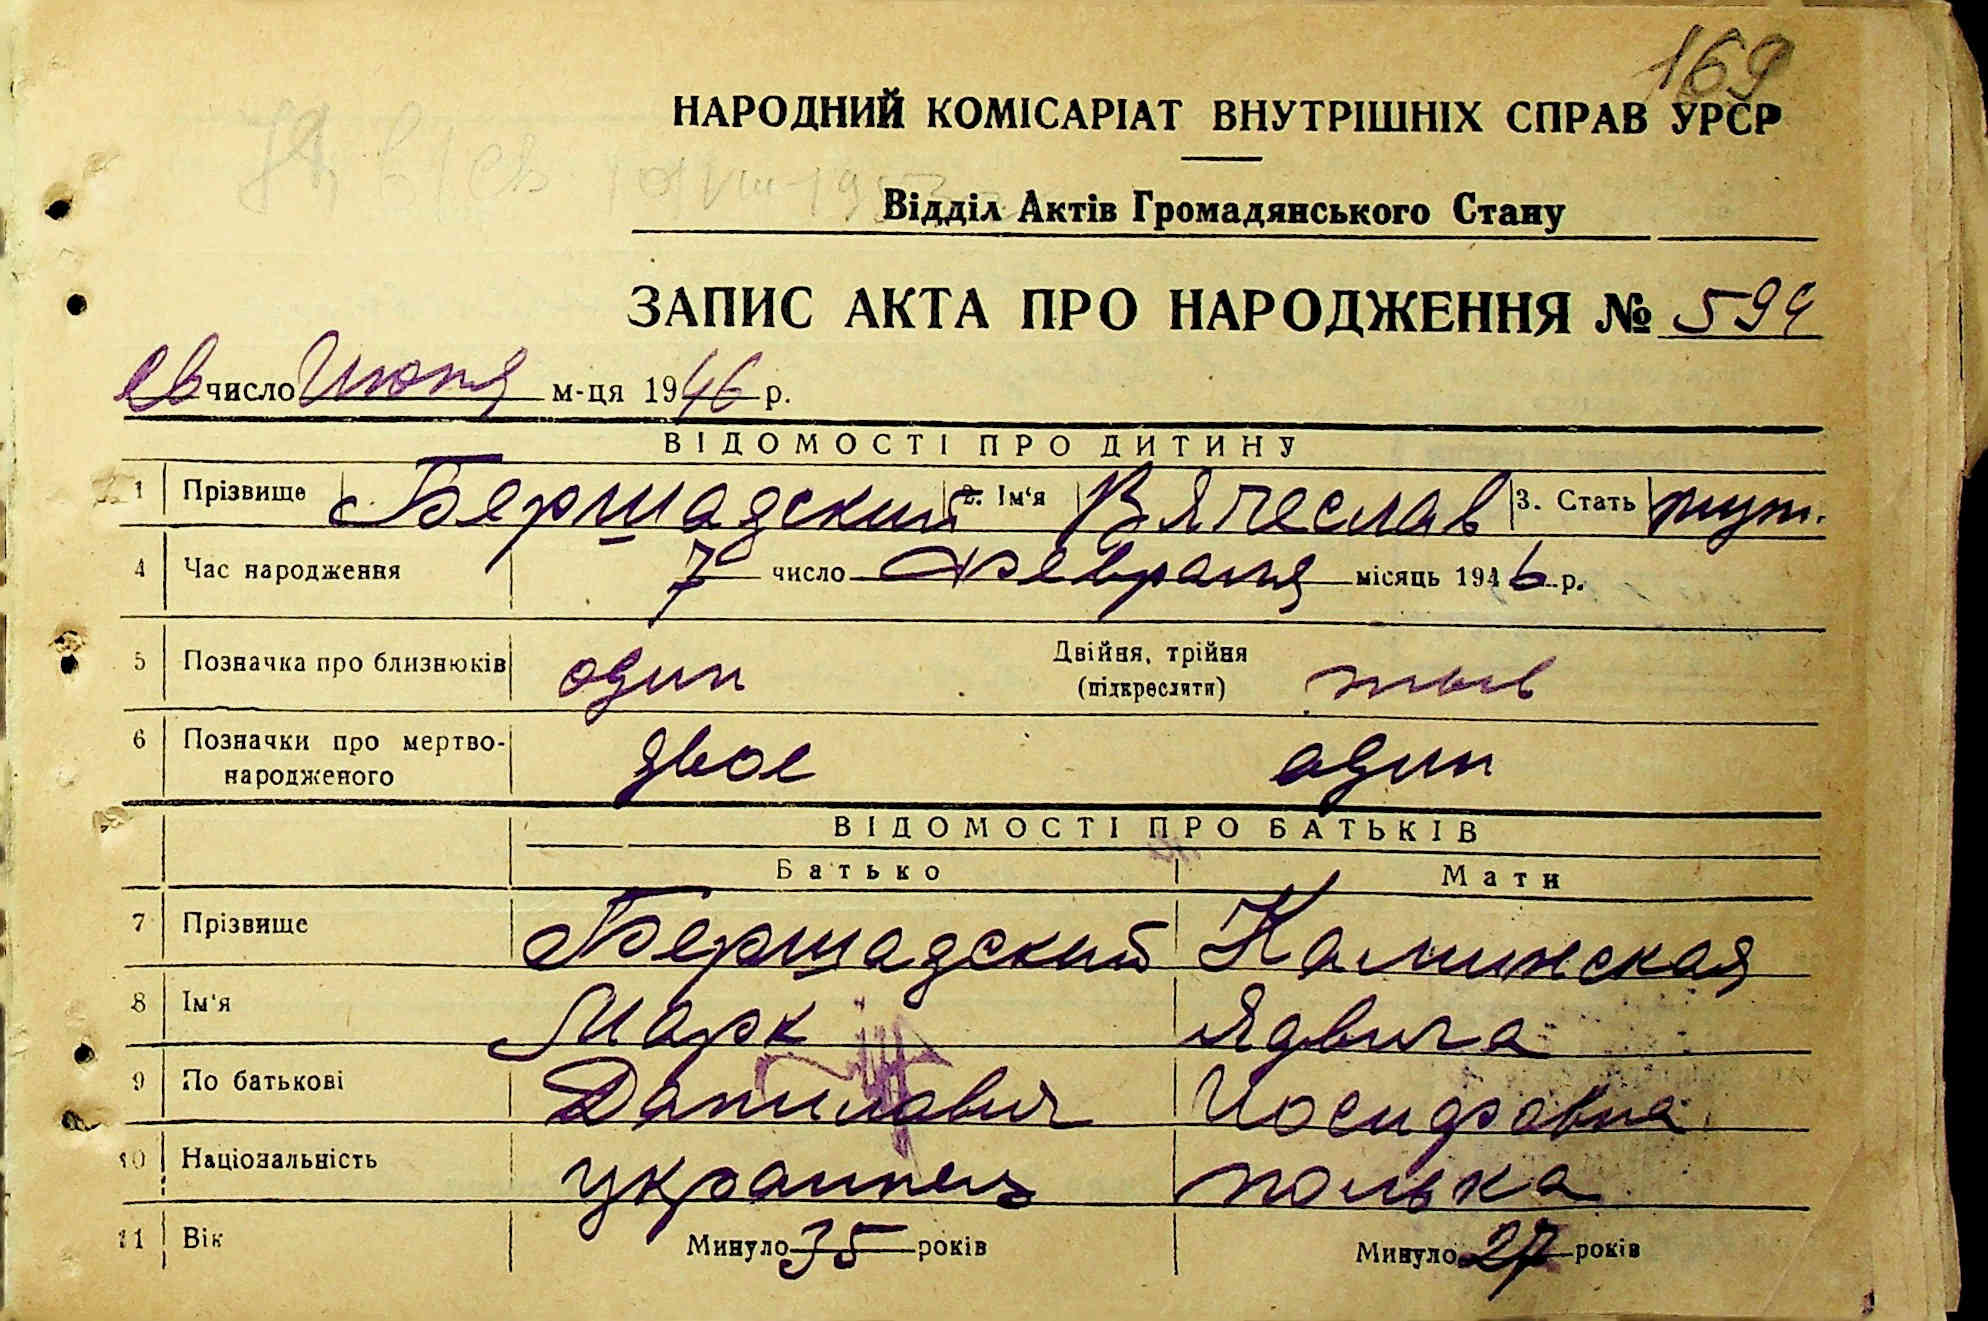 169
НАРОДНИЙ КОМІСАРІАТ ВНУТРІШНІХ СПРАВ УРСР
Відділ Актів Громадянського Стану
ЗАПИС АКТА ПРО НАРОДЖЕННЯ № 599
число Июня м-ця 1946 р.
ВІДОМОСТІ ПРО ДИТИНУ
1 Прізвище Бершадский 2. Ім'я Вячеслав 3. Стать муж.
4 Час народження 7 число Февраля місяць 1946 р.
5 Позначка про близнюків один Двійня, трійня (підкреслити)
6 Позначки про мертво-народженого двое один
ВІДОМОСТІ ПРО БАТЬКІВ
Батько Мати
7 Прізвище Бершадский Калинская
8 Ім'я Марк Ядвига
9 По батькові Данилович Иосифовна
10 Національність украинец полька
11 Вік Минуло 35 років Минуло 27 років